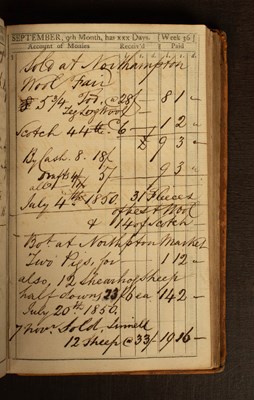 SEPTEMBER, 9th Month, has xxx Days. [Week 36
Account of Monies Receiv'd Paid
Sold at Northampton
Wool Fair
5 3/4 Tod, @ 28/ 8 1 –
Teg Log Wool
Scotch 44 lb @ 6 – 1 2 –
£ 9 3 –
By Cash. 8. 18/
9 3 –
July 4th 1850. 31 Fleeces
of best Wool
& 14 of Scotch
Bot at Northpton Market
Two Pigs, for 1 12 –
also, 12 Shearhog Sheep
half downs 23/6 ea 14 2 –
July 20th 1850.
7 Novr Sold,
12 Sheep @ 33/ 19 16 –